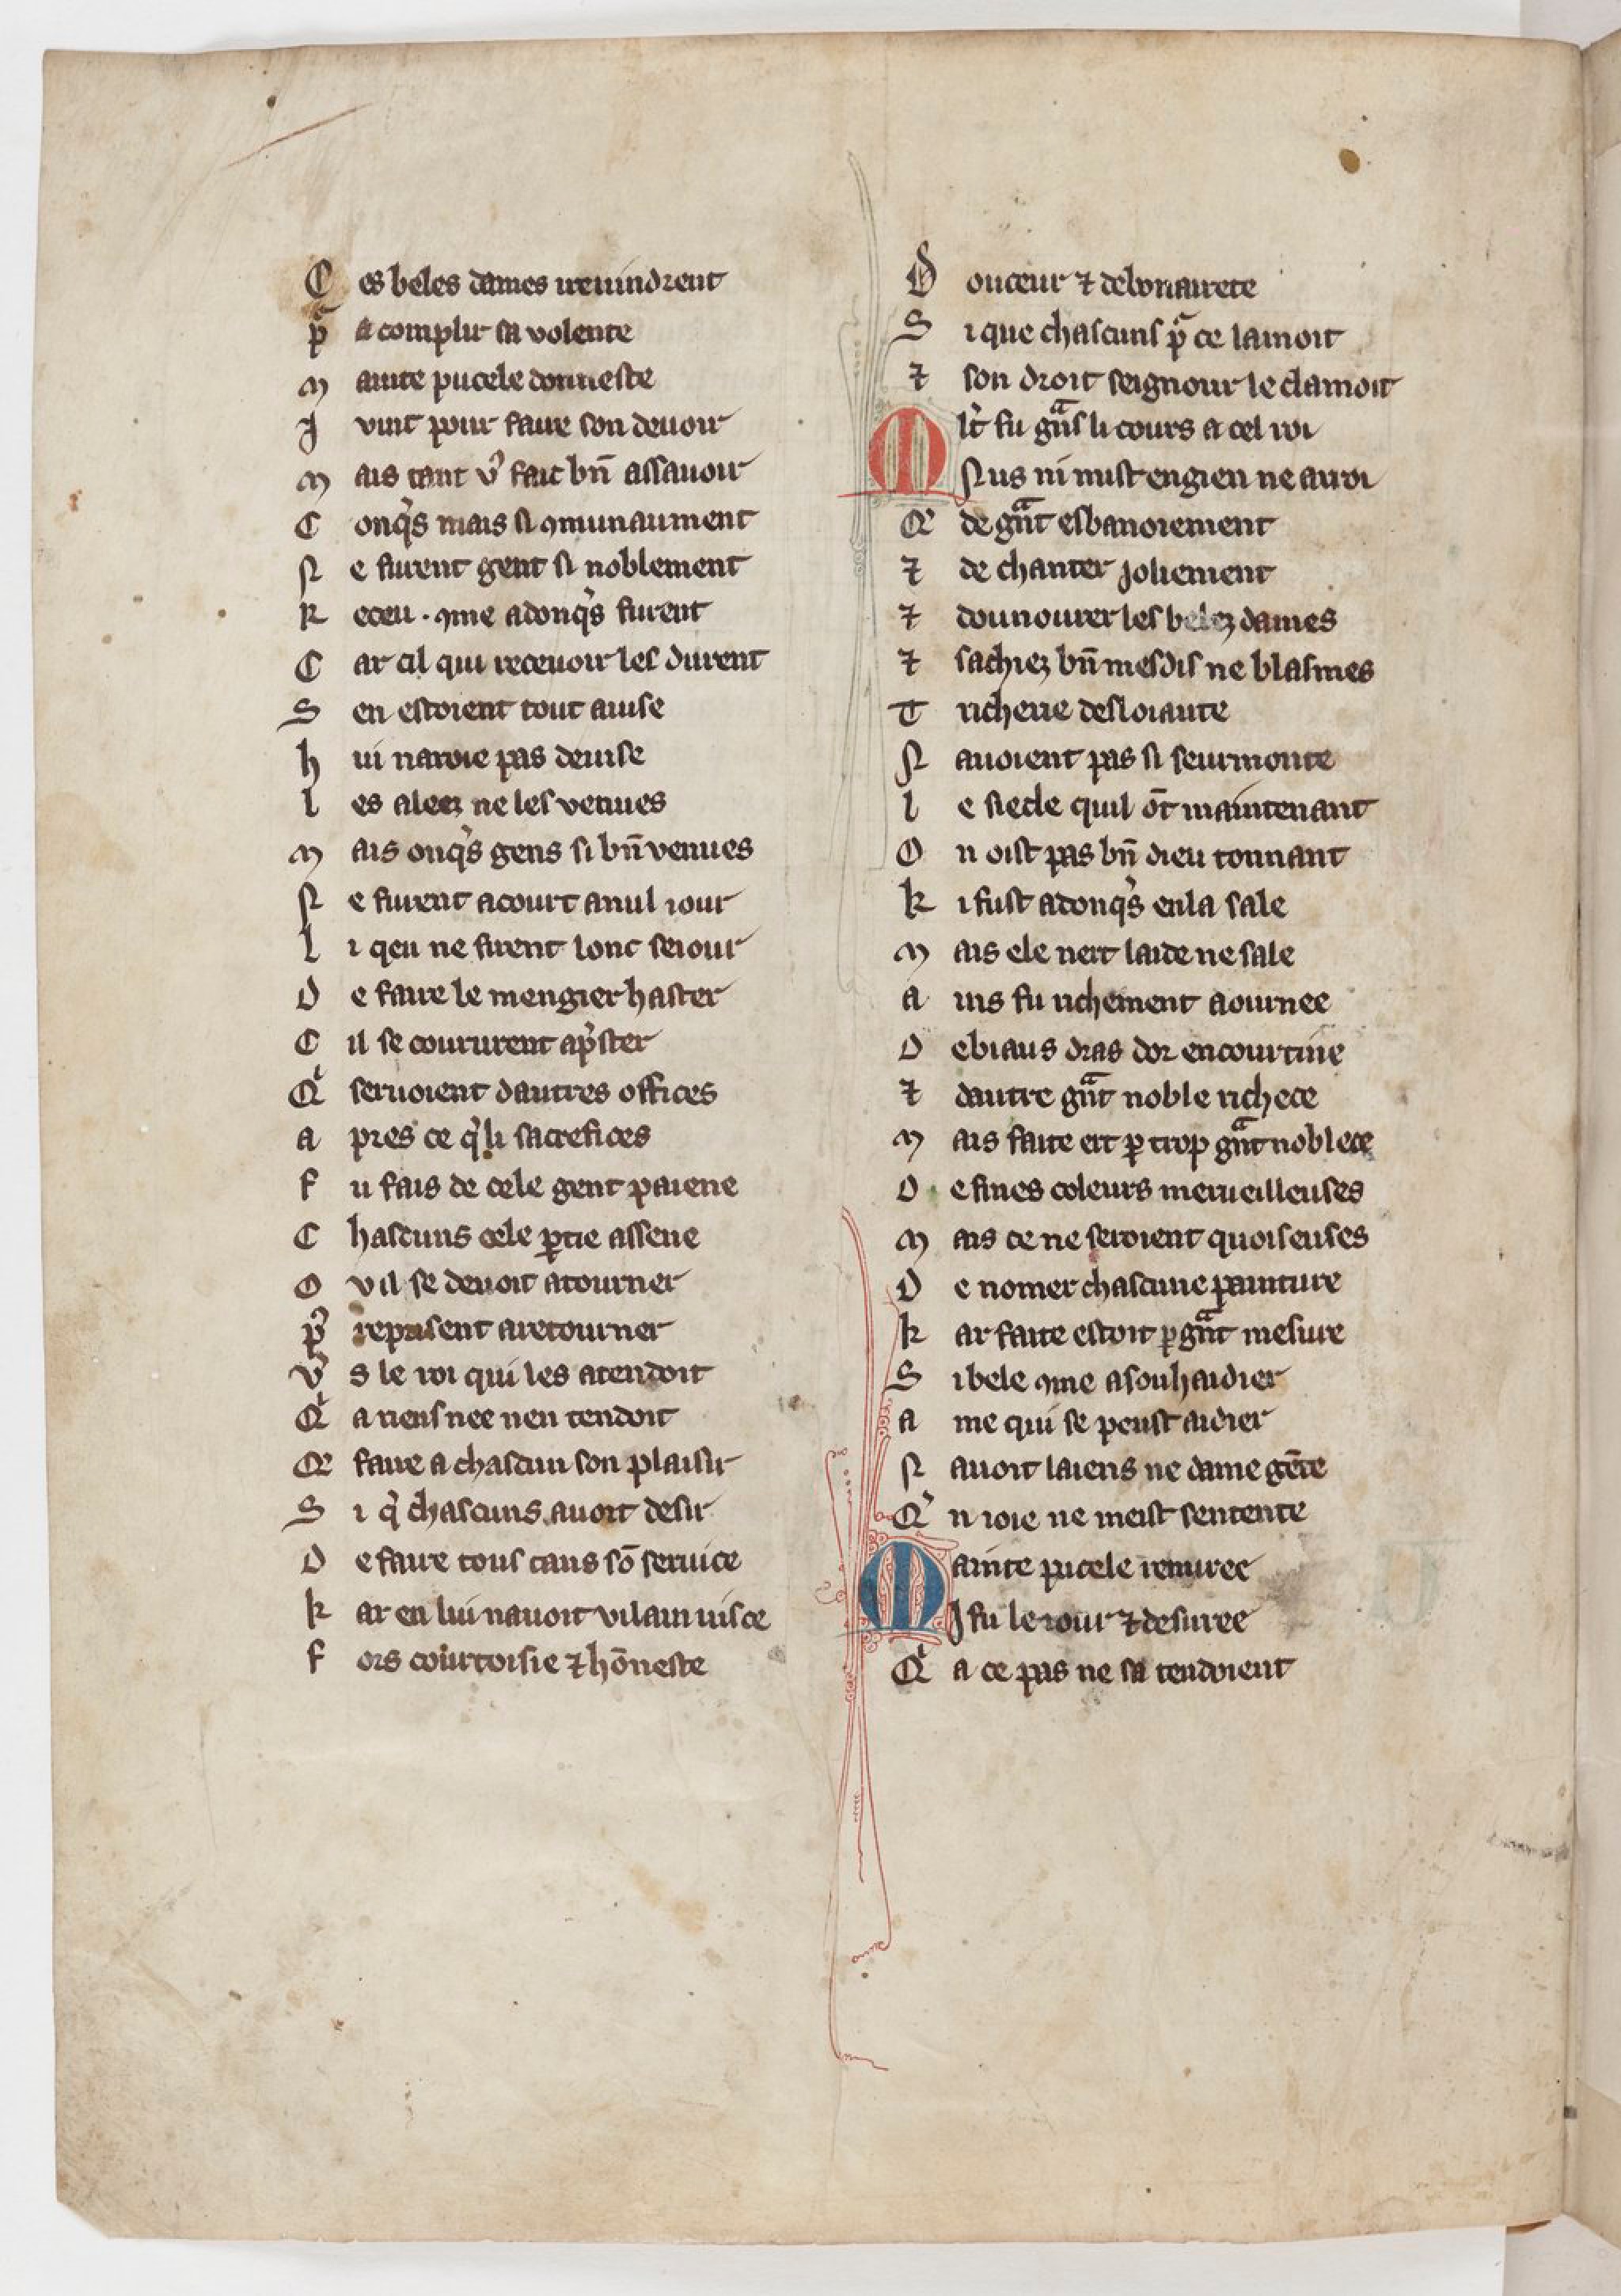 C es beles dames i reuindrent
pᵃ acomplir sa volente
M ainte pucele donneste
J vint pour faire son deuoir
M ais tant vᵒ fait bn̄ assauoir
C onqˢs mais si ꝯmunaument
N e furent gent si noblement
R eceu . ꝯme adonqˢs furent
C ar cil qui receuoir les durent
S en estoient tout auise
h ui naroie pas deuise
l es aleez ne les venues
M ais onqˢs gens si bn̄ venues
N e furent a court a nul iour
l i qeu ne firent lonc seiour
D e faire le mengier haster
C il se coururent apˢster
Qⁱ seruoient dautres offices
a pres ce qˢ li sacrefices
F u fais de cele gent paiene
C hascuns cele ꝑtie assene
O v il se deuoit atourner
pᵒ reprisent a retourner
vᵒ s le roi qui les atendoit
Qⁱ a riens nee nen tendoit
Qᵉ faire a chascun son plaisir
S i qˢ chascuns auoit desir
D e faire tous tans sō seruice
k ar en lui nauoit vilain uisce
F ors courtoisie ⁊ hōneste
D ouceur ⁊ debonairete
S i que chascuns pᵃ ce lamoit
⁊ son droit seignour le clamoit
M lˢt fu gn̄ᵃs li cours a cel roi
N us ni mist engien ne arroi
Qᵉ de gn̄ᵃt esbanoiement
⁊ de chanter joliement
⁊ dounourer les belez dames
⁊ sachiez bn̄ mesdis ne blasmes
T richerie desloiaute
N auoient pas si seurmonte
l e siecle quil ōt maintenant
O n oist pas bn̄ dieu tonnant
k i fust adonqˢs en la sale
M ais ele nert laide ne sale
a ins fu richement aournee
D e biaus dras dor encourtine
⁊ dautre gn̄ᵃt noble richece
M ais faite ert ꝑ trop gn̄ᵃt noblece
D e fines coleurs merueilleuses
M ais ce ne seroient quoiseuses
D e nomer chascune painture
k ar faite estoit ꝑ gn̄ᵃt mesure
S i bele ꝯme a souhaidier
a me qui se peust aidier
N auoit laiens ne dame gēte
Qˢ n ioie ne meist sentente
M ainte pucele renuree
J fu le iour ⁊ desuree
Qⁱ a ce pas ne satendoient